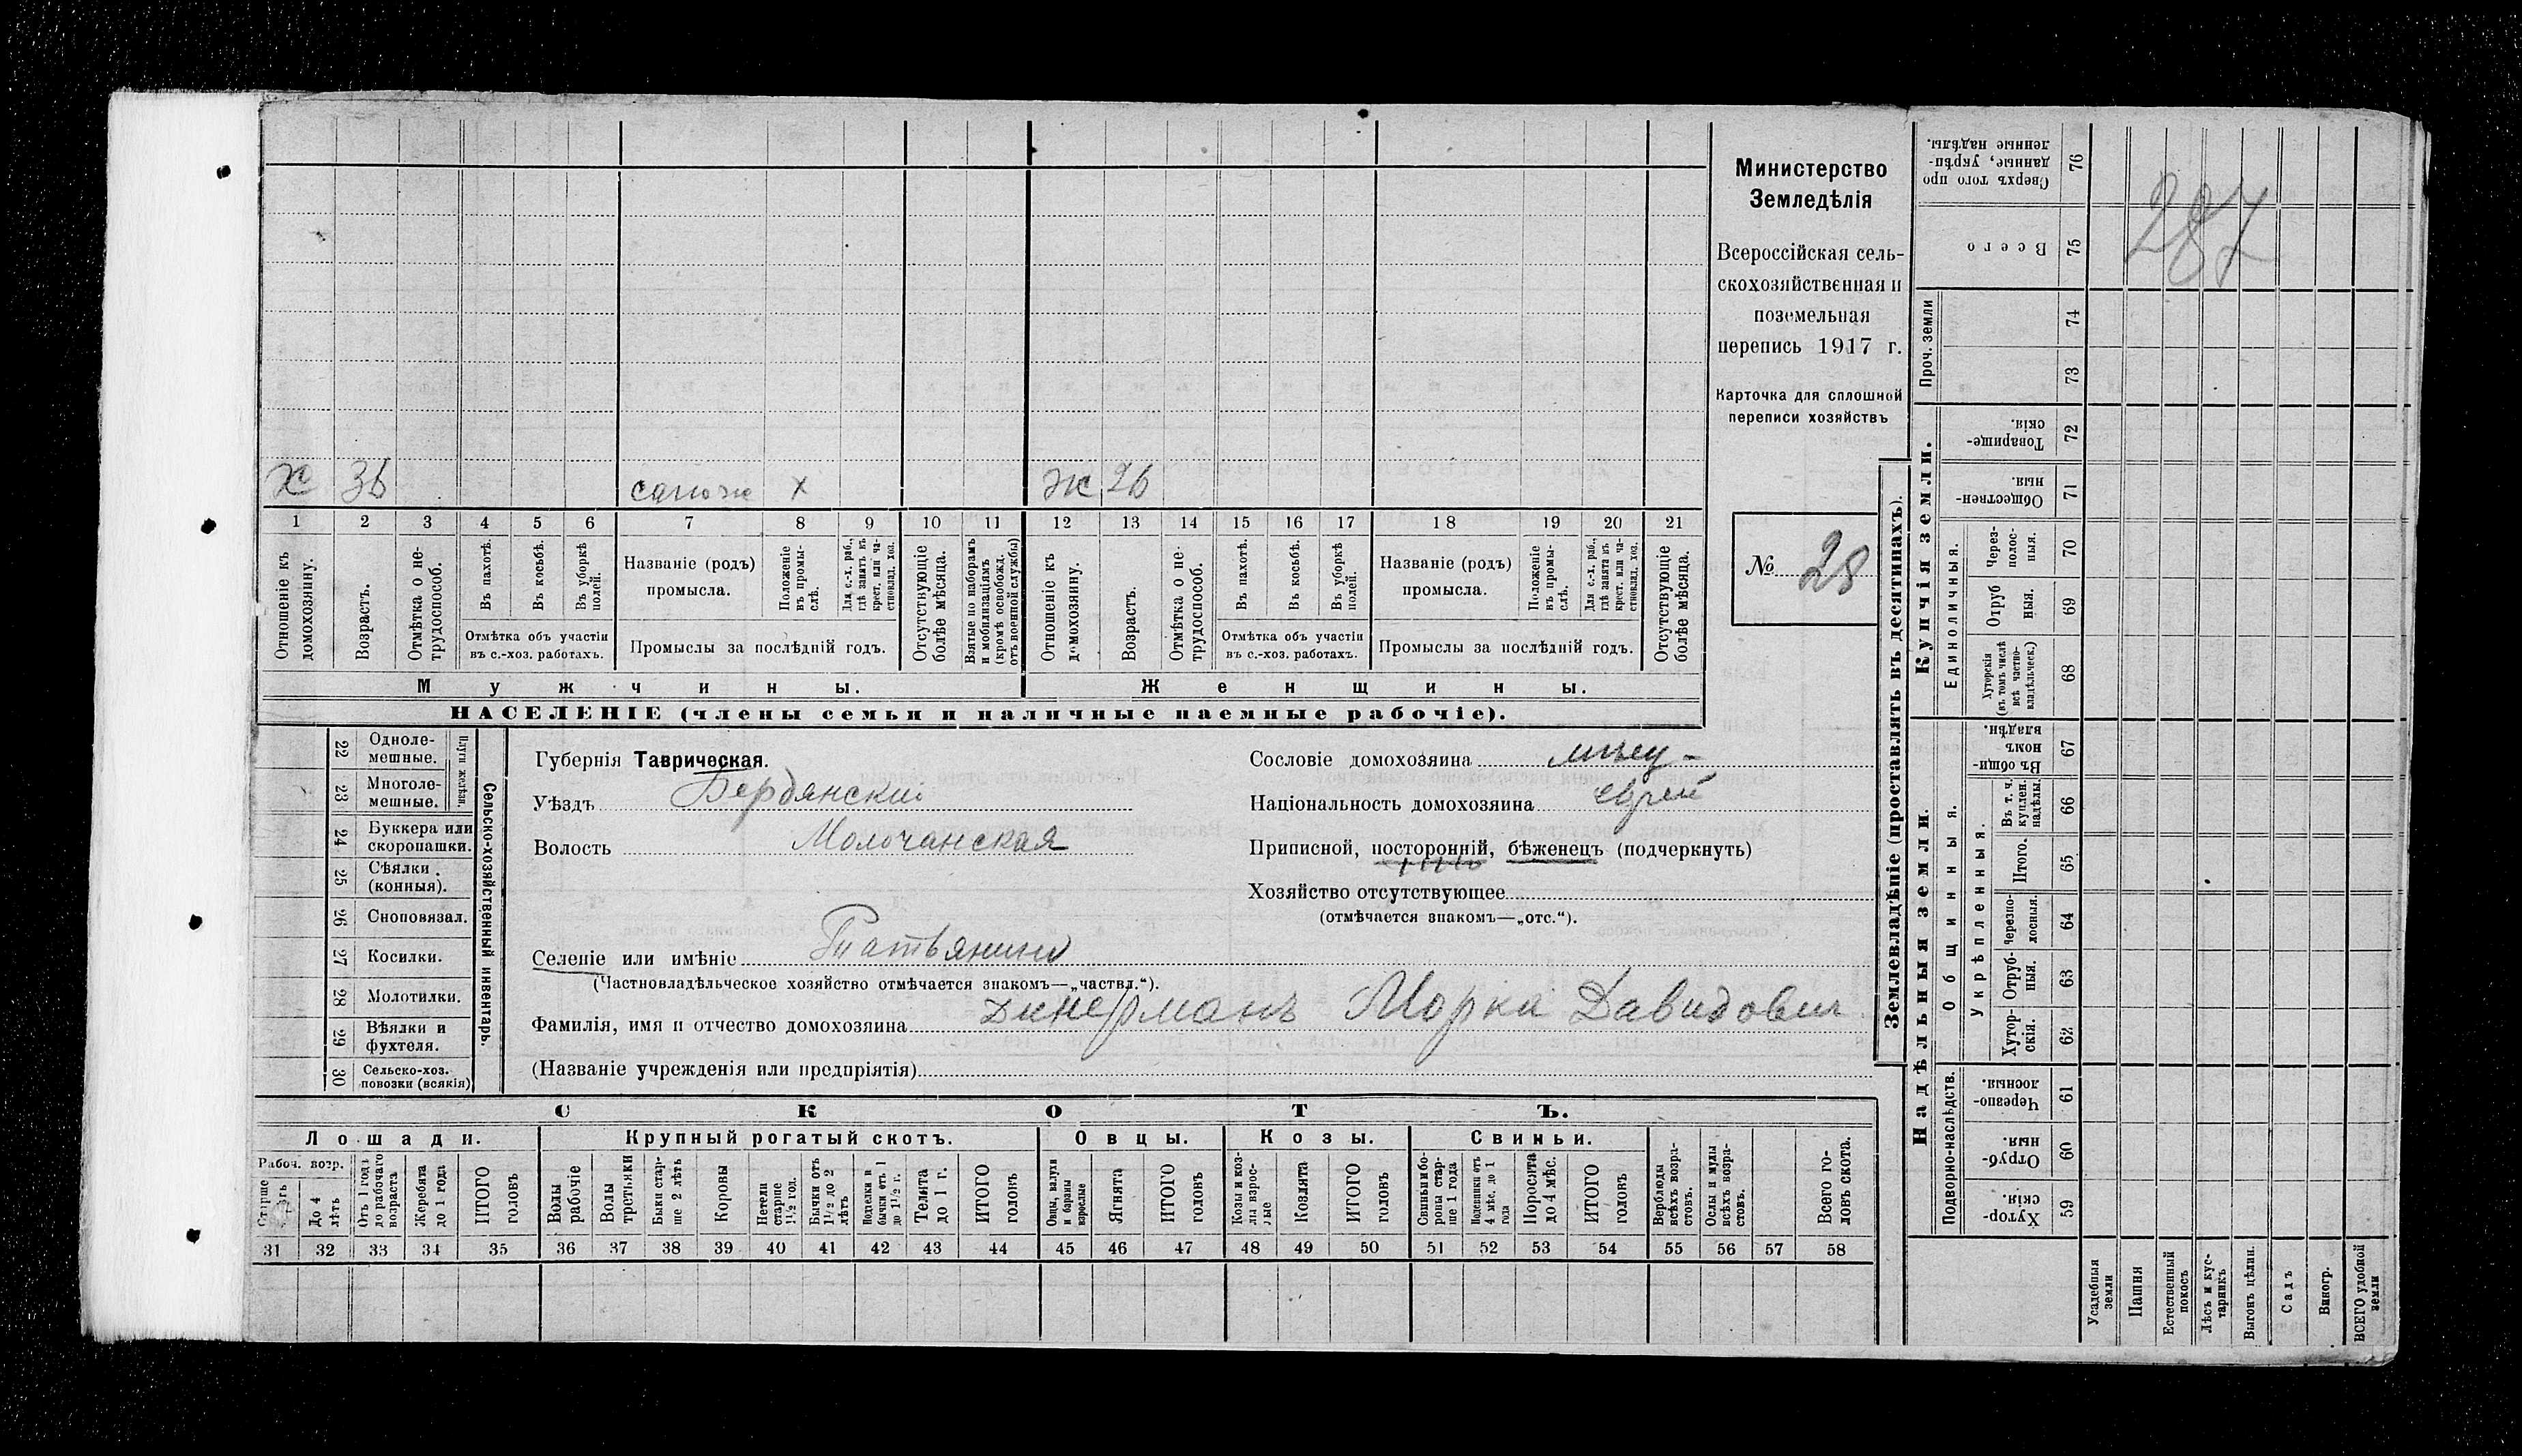 х 36 сапожн х ж 26
1 2 3 4 5 6 7 8 9 10 11 12 13 14 15 16 17 18 19 20 21
Отношеніе къ домохозяину.
Возрастъ.
Отмѣтка о не-трудоспособ.
Въ пахотѣ.
Въ косьбѣ.
Въ уборкѣ полей.
Отмѣтка объ участіи
въ с.-хоз. работахъ.
Названіе (родъ)
промысла.
Положеніе въ промы-слѣ.
Для с.-х. раб., гдѣ занятъ въ крест. или ча-стновлад. хоз.
Промыслы за послѣдній годъ.
Отсутствующіе болѣе мѣсяца.
Взятые по наборамъ и мобилизаціямъ (кромѣ освобожд. отъ военной службы)
Отношеніе къ домохозяину.
Возрастъ.
Отмѣтка о не-трудоспособ.
Въ пахотѣ.
Въ косьбѣ.
Въ уборкѣ полей.
Отмѣтка объ участіи
въ с.-хоз. работахъ.
Названіе (родъ)
промысла.
Положеніе въ промы-слѣ.
Для с.-х. раб., гдѣ занята въ крест. или ча-стновлад. хоз.
Промыслы за послѣдній годъ.
Отсутствующіе болѣе мѣсяца.
Мужчины.
Женщины.
НАСЕЛЕНІЕ (члены семьи и наличные наемные рабочіе).
Министерство
Земледѣлія
Всероссійская сель-
скохозяйственная и
поземельная
перепись 1917 г.
Карточка для сплошной
переписи хозяйствъ
№ 28
22 Одноле-мешные.
23 Многоле-мешные.
Плуги желѣзн.
24 Буккера или скоропашки.
25 Сѣялки (конныя).
26 Сноповязал.
27 Косилки.
28 Молотилки.
29 Вѣялки и фухтеля.
30 Сельско-хоз. повозки (всякія)
Сельско-хозяйственный инвентарь.
Губернія Таврическая.
Уѣздъ Бердянский
Волость Молочанская
Селеніе или имѣніе
(Частновладѣльческое хозяйство отмѣчается знакомъ—„частвл.“).
Фамилія, имя и отчество домохозяина Динерманъ Морка Давидович
(Названіе учрежденія или предпріятія)
Сословіе домохозяина мѣщ-
Національность домохозяина еврей
Приписной, посторонній, бѣженецъ (подчеркнуть)
Хозяйство отсутствующее
(отмѣчается знакомъ—„отс.“).
СКОТЪ.
Лошади. Крупный рогатый скотъ. Овцы. Козы. Свиньи.
Рабоч. возр.
До 4 лѣтъ
Отъ 1 года до рабочаго возраста
Жеребята до 1 года
ИТОГО головъ
Волы рабочіе
Волы третьяки
Быки стар-ше 2 лѣтъ
Коровы
Нетели старше 1½ год.
Бычки отъ 1½ до 2 лѣтъ
Подтелки и бычки отъ 1 до 1½ г.
Телята до 1 г.
ИТОГО головъ
Овцы, валухи и бараны взрослые
Ягнята
ИТОГО головъ
Козы и коз-лы взрос-лые
Козлята
ИТОГО головъ
Свиньи и бо-ровы стар-ше 1 года
Подсвинки отъ 4 мѣс. до 1 года
Поросята до 4 мѣс.
ИТОГО головъ
Верблюды всѣхъ возра-стовъ.
Ослы и мулы всѣхъ возра-стовъ.
Всего го-ловъ скота.
31 32 33 34 35 36 37 38 39 40 41 42 43 44 45 46 47 48 49 50 51 52 53 54 55 56 57 58
Землевладѣніе (проставлять въ десятинахъ).
Купчія земли.
Надѣльныя земли.
Сверхъ того про данные, укрѣп-ленные надѣлы. 76
Всего 75
Проч. земли
74
73
Товарище-скія. 72
Обществен-ныя. 71
Единоличныя.
Через-полос-ныя. 70
Отруб ныя. 69
Хуторскія (въ томъ числѣ всѣ частно-владѣльческ.) 68
Въ общи-номъ владѣн. 67
Общинныя.
Укрѣпленныя.
Въ т. ч. куплен. надѣлы. 66
Итого. 65
Черезпо-лосныя. 64
Отруб-ныя. 63
Хутор-скія. 62
Подворно-наслѣдств.
Черезпо-лосныя. 61
Отруб-ныя. 60
Хутор-скія. 59
Усадебныя земли
Пашня
Естественный покосъ
Лѣсъ и кус-тарникъ
Выгонъ цѣлин.
Садъ
Виногр.
ВСЕГО удобной земли
287